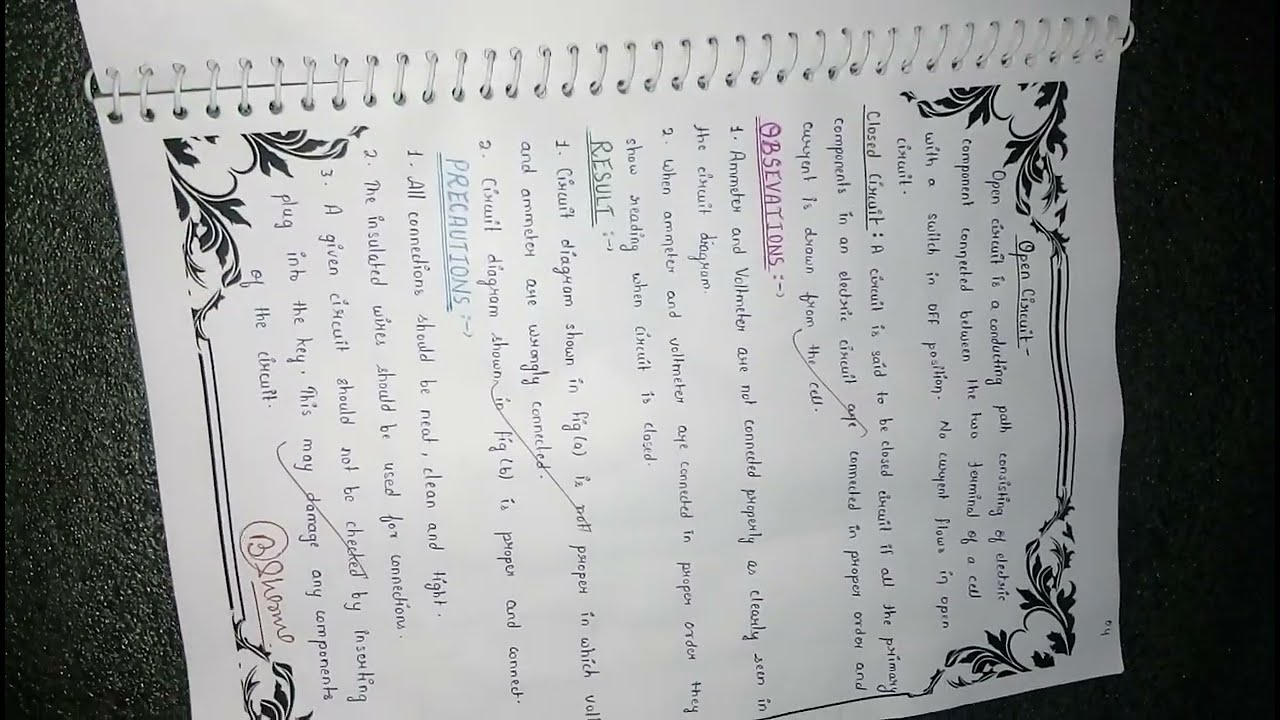 04
Open Circuit-
Open circuit is a conducting path consisting of electric
component connected between the two terminal of a cell
with a switch in OFF position. No current flows in open
circuit.
Closed Circuit : A circuit is said to be closed circuit if all the primary
components in an electric circuit are connected in proper order and
current is drawn from the cell.
OBSEVATIONS :→
1. Ammeter and Voltmeter are not connected properly as clearly seen in
the circuit diagram.
2. When ammeter and voltmeter are connected in proper order they
show reading when circuit is closed.
RESULT :→
1. Circuit diagram shown in fig (a) is not proper in which vol
and ammeter are wrongly connected.
2. Circuit diagram shown in fig (b) is proper and connect.
PRECAUTIONS :→
1. All connections should be neat, clean and tight.
2. The insulated wires should be used for connections.
3. A given circuit should not be checked by inserting
plug into the key. This may damage any components
of the circuit.